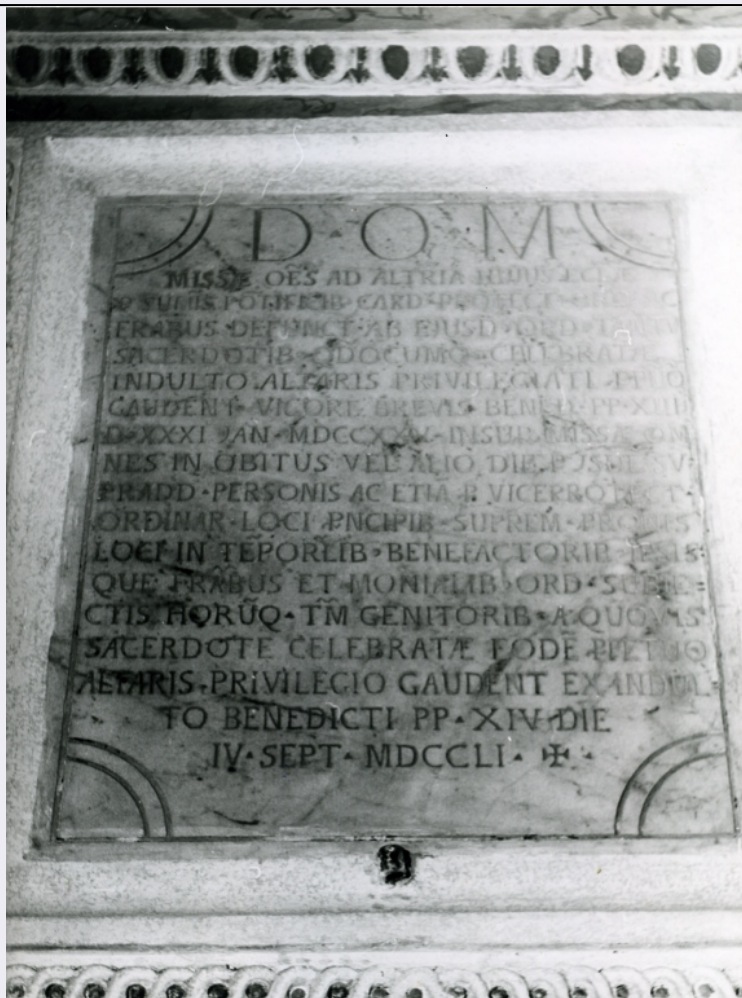 D·O·M
MISSÆ OES AD ALTRIA HUIUS ECLÆ
SUMIS POTIFICIB CARD PROTECT
FRABUS DEFUNCT·AB EJUSD·ORD
SACERDOTIB·QDOCUMQ·CELEBRATÆ
INDULTO ALTARIS PRIVILEGIATI PPUO
GAUDENT·VIGORE BREVIS BENED·PP·XIII
D·XXXI JAN·INSUP MISSÆ OM
NES IN OBITUS VEL ALIO DIE SU
PRADD·PERSONIS AC ETIA P. VICEPROTECT
ORDINAR·LOCI PNCIPIB·SUPREM
LOCI IN TĒPORLIB·BENEFACTORIB IPSIS
QUE FRABUS ET MONIALIB·ORD·SUBIE=
CTIS HORŪQ·TM̄ GENITORIB·A QUOVIS
SACERDOTE CELEBRATÆ EODĒ PPETUO
ALTARIS·PRIVILEGIO GAUDENT EX INDUL
TO BENEDICTI PP·XIV·DIE
IV·SEPT·MDCCLI·✠·